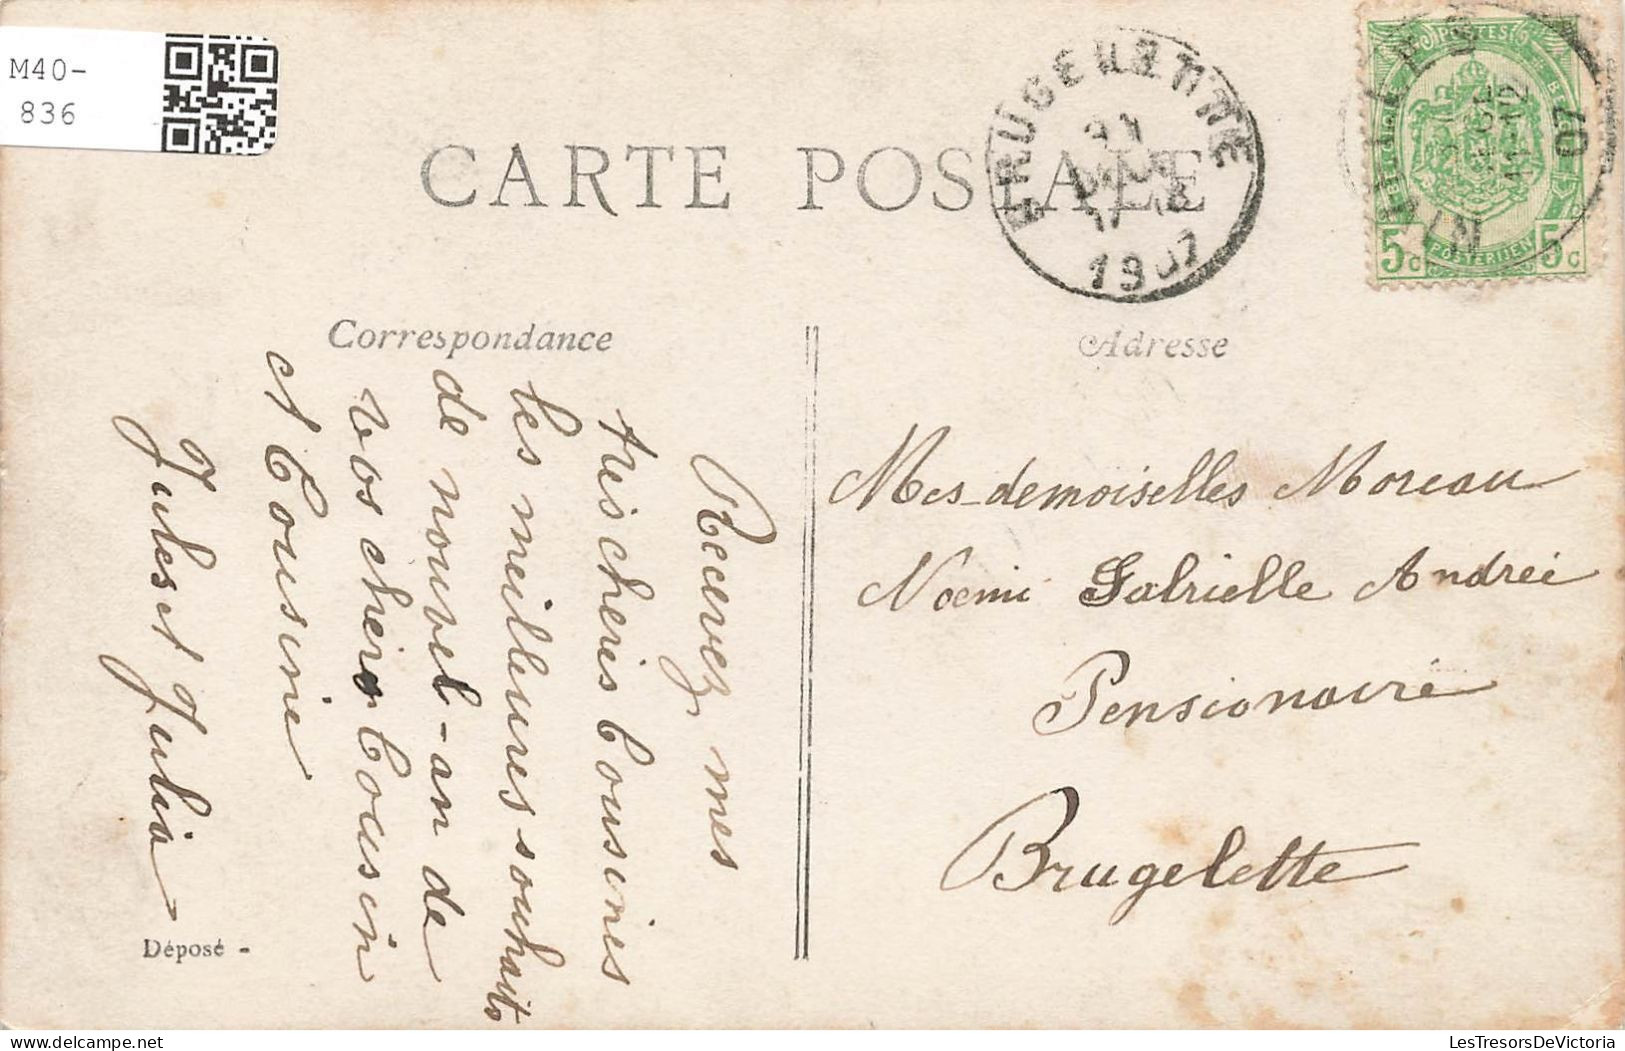 M40-
836
CARTE POSTALE
BRUGELETTE
1907
POSTES
5c POSTERIJEN 5c
Correspondance
Recevez, mes
très chéris Cousines
les meilleures souhaits
de nouvel-an de
vos chers Cousin
et Cousine
Jules et Julia
Déposé -
Adresse
Mes-demoiselles Moreau
Noemi Gabrielle Andrée
Pensionaire
Brugelette
www.LesTresorsDeVictoria.com